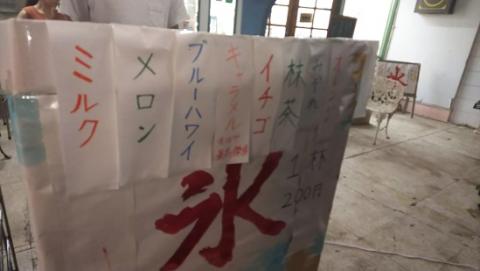 ミルク
メロン
ブルーハワイ
キャラメル
イチゴ
抹茶
1杯
200円
氷
氷